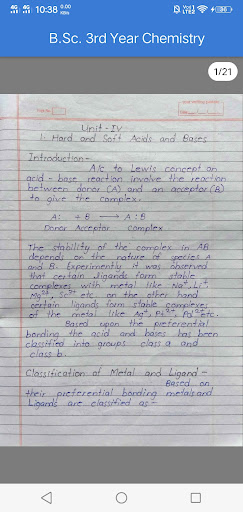 10:38
0.00
KB/s
Vo1)
LTE2
B.Sc. 3rd Year Chemistry
1/21
Unit - IV
1. Hard and Soft Acids and Bases
Introduction -
A/c to Lewis concept an
acid - base reaction involve the reaction
between donar (A) and an acceptor (B)
to give the complex.
A: + B ⟶ A : B
Donar Acceptor complex
The stability of the complex in AB
depends on the nature of species A
and B. Experimently it was observed
that certain ligands form stable
complexes with metal like Na⁺, Li⁺,
Mg²⁺, Sc³⁺ etc. on the other hand
certain ligands form stable complexes
of the metal like Ag⁺, Pt²⁺, Pd²⁺ etc.
Based upon the preferential
bonding the acid and bases has been
classified into groups class a and
class b.
Classification of Metal and Ligand -
Based on
their preferential bonding metals and
Ligands are classified as -